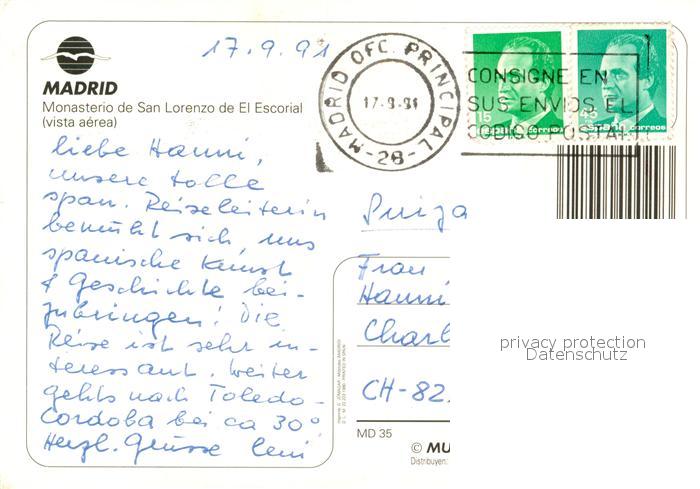 17.9.91
MADRID OFC. PRINCIPAL
17-9-91
-28-
CONSIGNE EN
SUS ENVIOS EL
CODIGO POSTAL
15
España correos
45
España correos
MADRID
Monasterio de San Lorenzo de El Escorial
(vista aérea)
liebe Hanni,
unsere tolle
span. Reiseleiterin
bemüht sich, uns
spanische Kunst
& Geschichte bei-
zubringen! Die
Reise ist sehr in-
teressant. Weiter
gehts nach Toledo-
Cordoba bei ca 30°
Herzl. Grüsse Leni
Suiza
Frau
Hanni
Charl
CH-82.
privacy protection
Datenschutz
MD 35
© MU
Distribuyen: